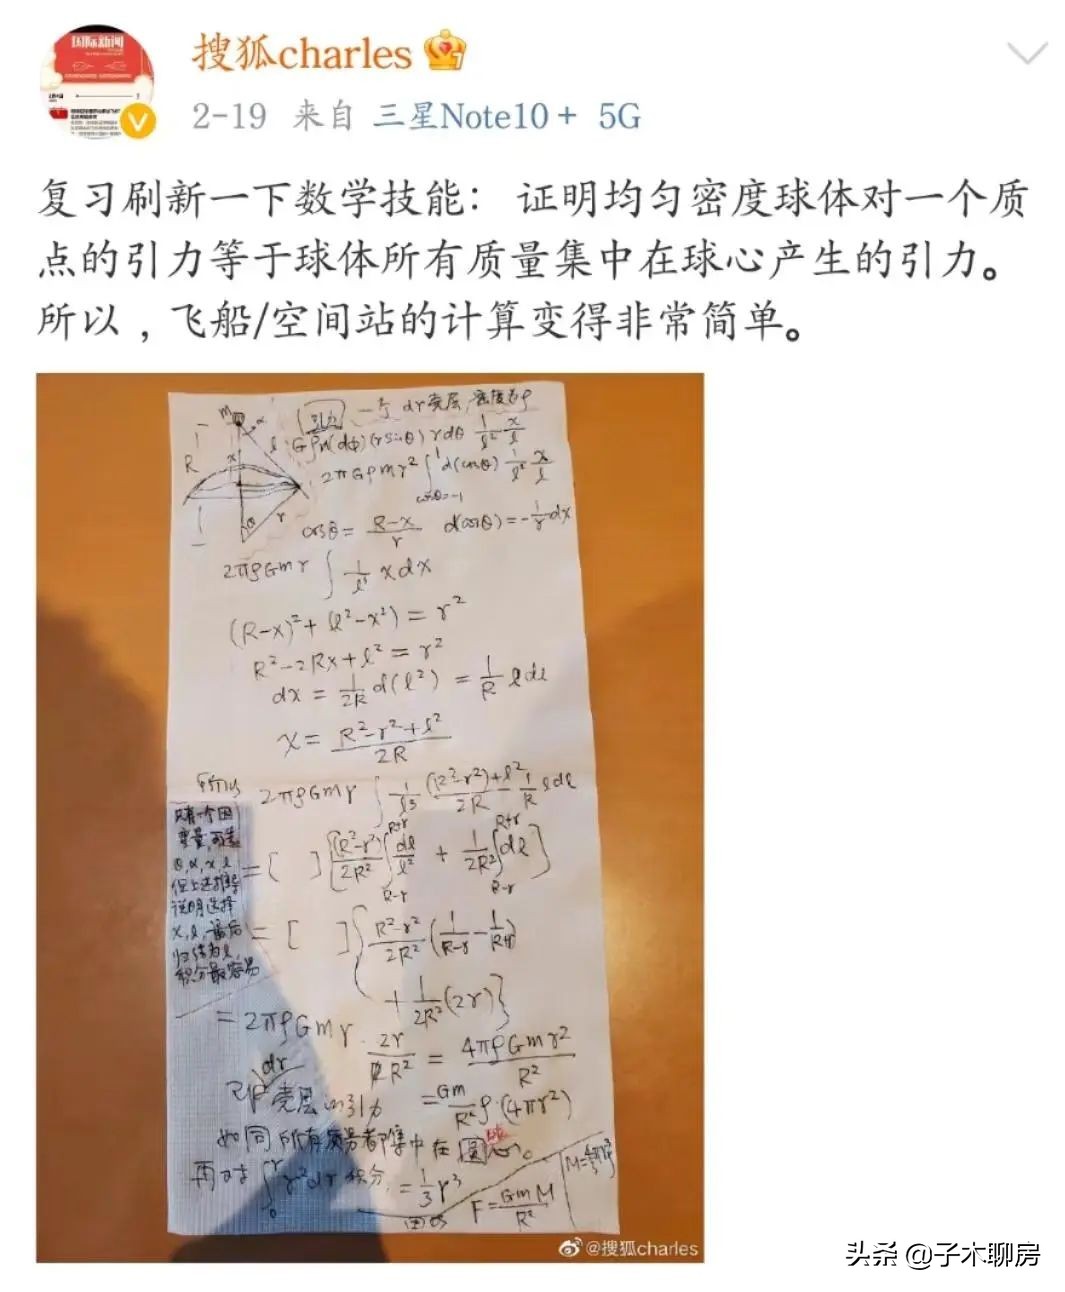 国际新闻
搜狐charles
2-19 来自 三星Note10+ 5G
复习刷新一下数学技能： 证明均匀密度球体对一个质
点的引力等于球体所有质量集中在球心产生的引力。
所以，飞船/空间站的计算变得非常简单。
m α
引力 一个 dr 壳层，密度为ρ
R x l
Gρm(dφ)(r sinθ) r dθ 1/l² x/l
2πGρmr² ∫_{cosθ=-1}^{1} d(cosθ) 1/l² x/l
θ r
cosθ = (R-x)/r d(cosθ) = -1/r dx
2πρGmr ∫ 1/l³ x dx
(R-x)² + (l²-x²) = r²
R²-2Rx+l² = r²
dx = 1/2R d(l²) = 1/R l dl
x = (R²-r²+l²)/2R
所以 2πρGmr ∫ 1/l³ ((R²-r²)+l²)/2R 1/R l dl
只有一个因
变量，可选
θ,α,x,l
但上述推导
说明选择
x,l,最后
归结为l,
积分最容易
= [ ] [(R²-r²)/2R² ∫_{R-r}^{R+r} dl/l² + 1/2R² ∫_{R-r}^{R+r} dl]
= [ ] {(R²-r²)/2R² (1/(R-r) - 1/(R+r))
+ 1/2R² (2r)}
= 2πρGmr · 2r/R² = 4πρGmr²/R²
即 dr 壳层的引力 = Gm/R² ρ·(4πr²)
如同所有质量都集中在圆球心。
再对 ∫_0^r r²dr 积分 = 1/3 r³
F = GmM/R²
@搜狐charles
头条 @子木聊房